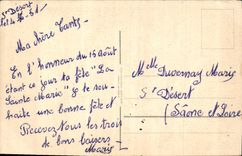 St Désert
le 14-8-51
Ma chère Tante,
En l'honneur du 15 Août
étant ce jour ta fête "La
Sainte Marie" je te sou-
haite une bonne fête et
Recevez Nous les trois
de bons baisers
Marie
Mlle Duvernay Marie
St Désert
(Saône et Loire